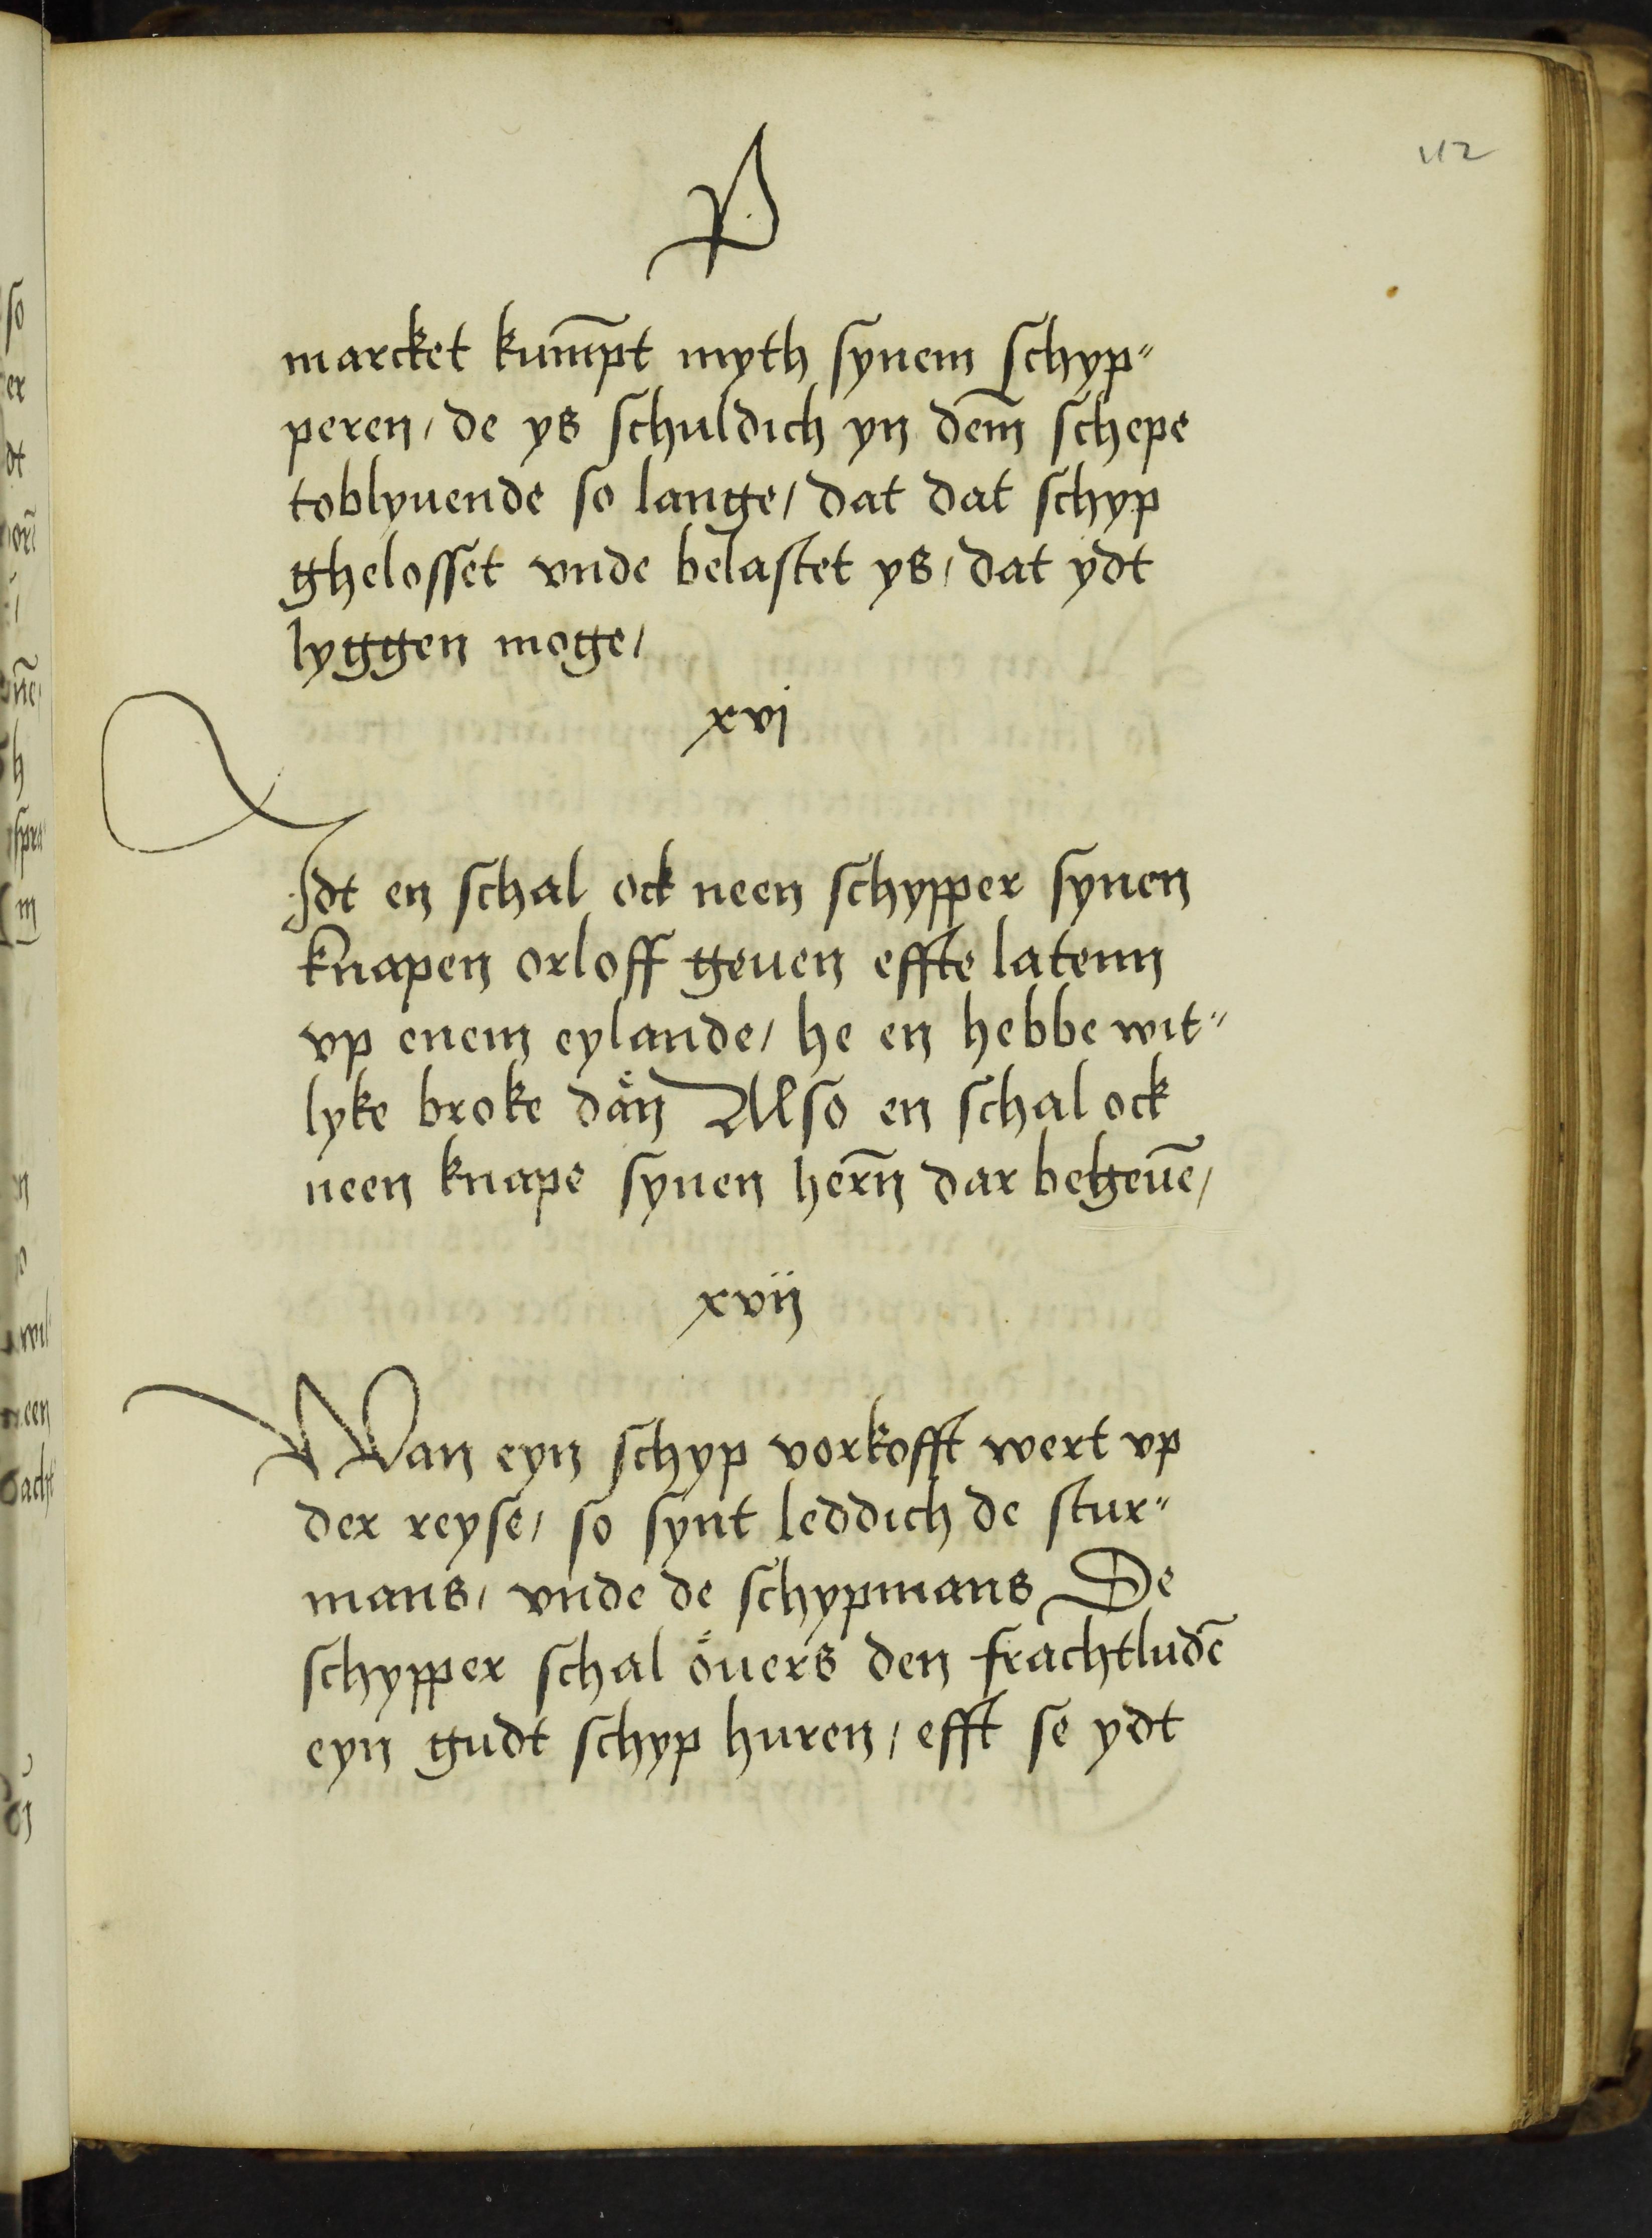 112
P
marcket kum̄pt myth synem schyp"
peren / de ys schuldich yn dem̄ schepe
toblyuende so lange / dat dat schyp
ghelosset vnde belastet ys / dat ydt
lyggen moge /
xvj
Idt en schal ock neen schypper synen
knapen orloff geuen effte latenn
vp enem eylande / he en hebbe wit"
lyke broke daͤn Also en schal ock
neen knape synen hern̄ dar begeuē /
xvij
Wan eyn schyp vorkofft wert vp
der reyse / so synt leddich de stur"
mans / vnde de schypmans De
schypper schal oͤuers den frachtludē
eyn gudt schyp huren / efft se ydt